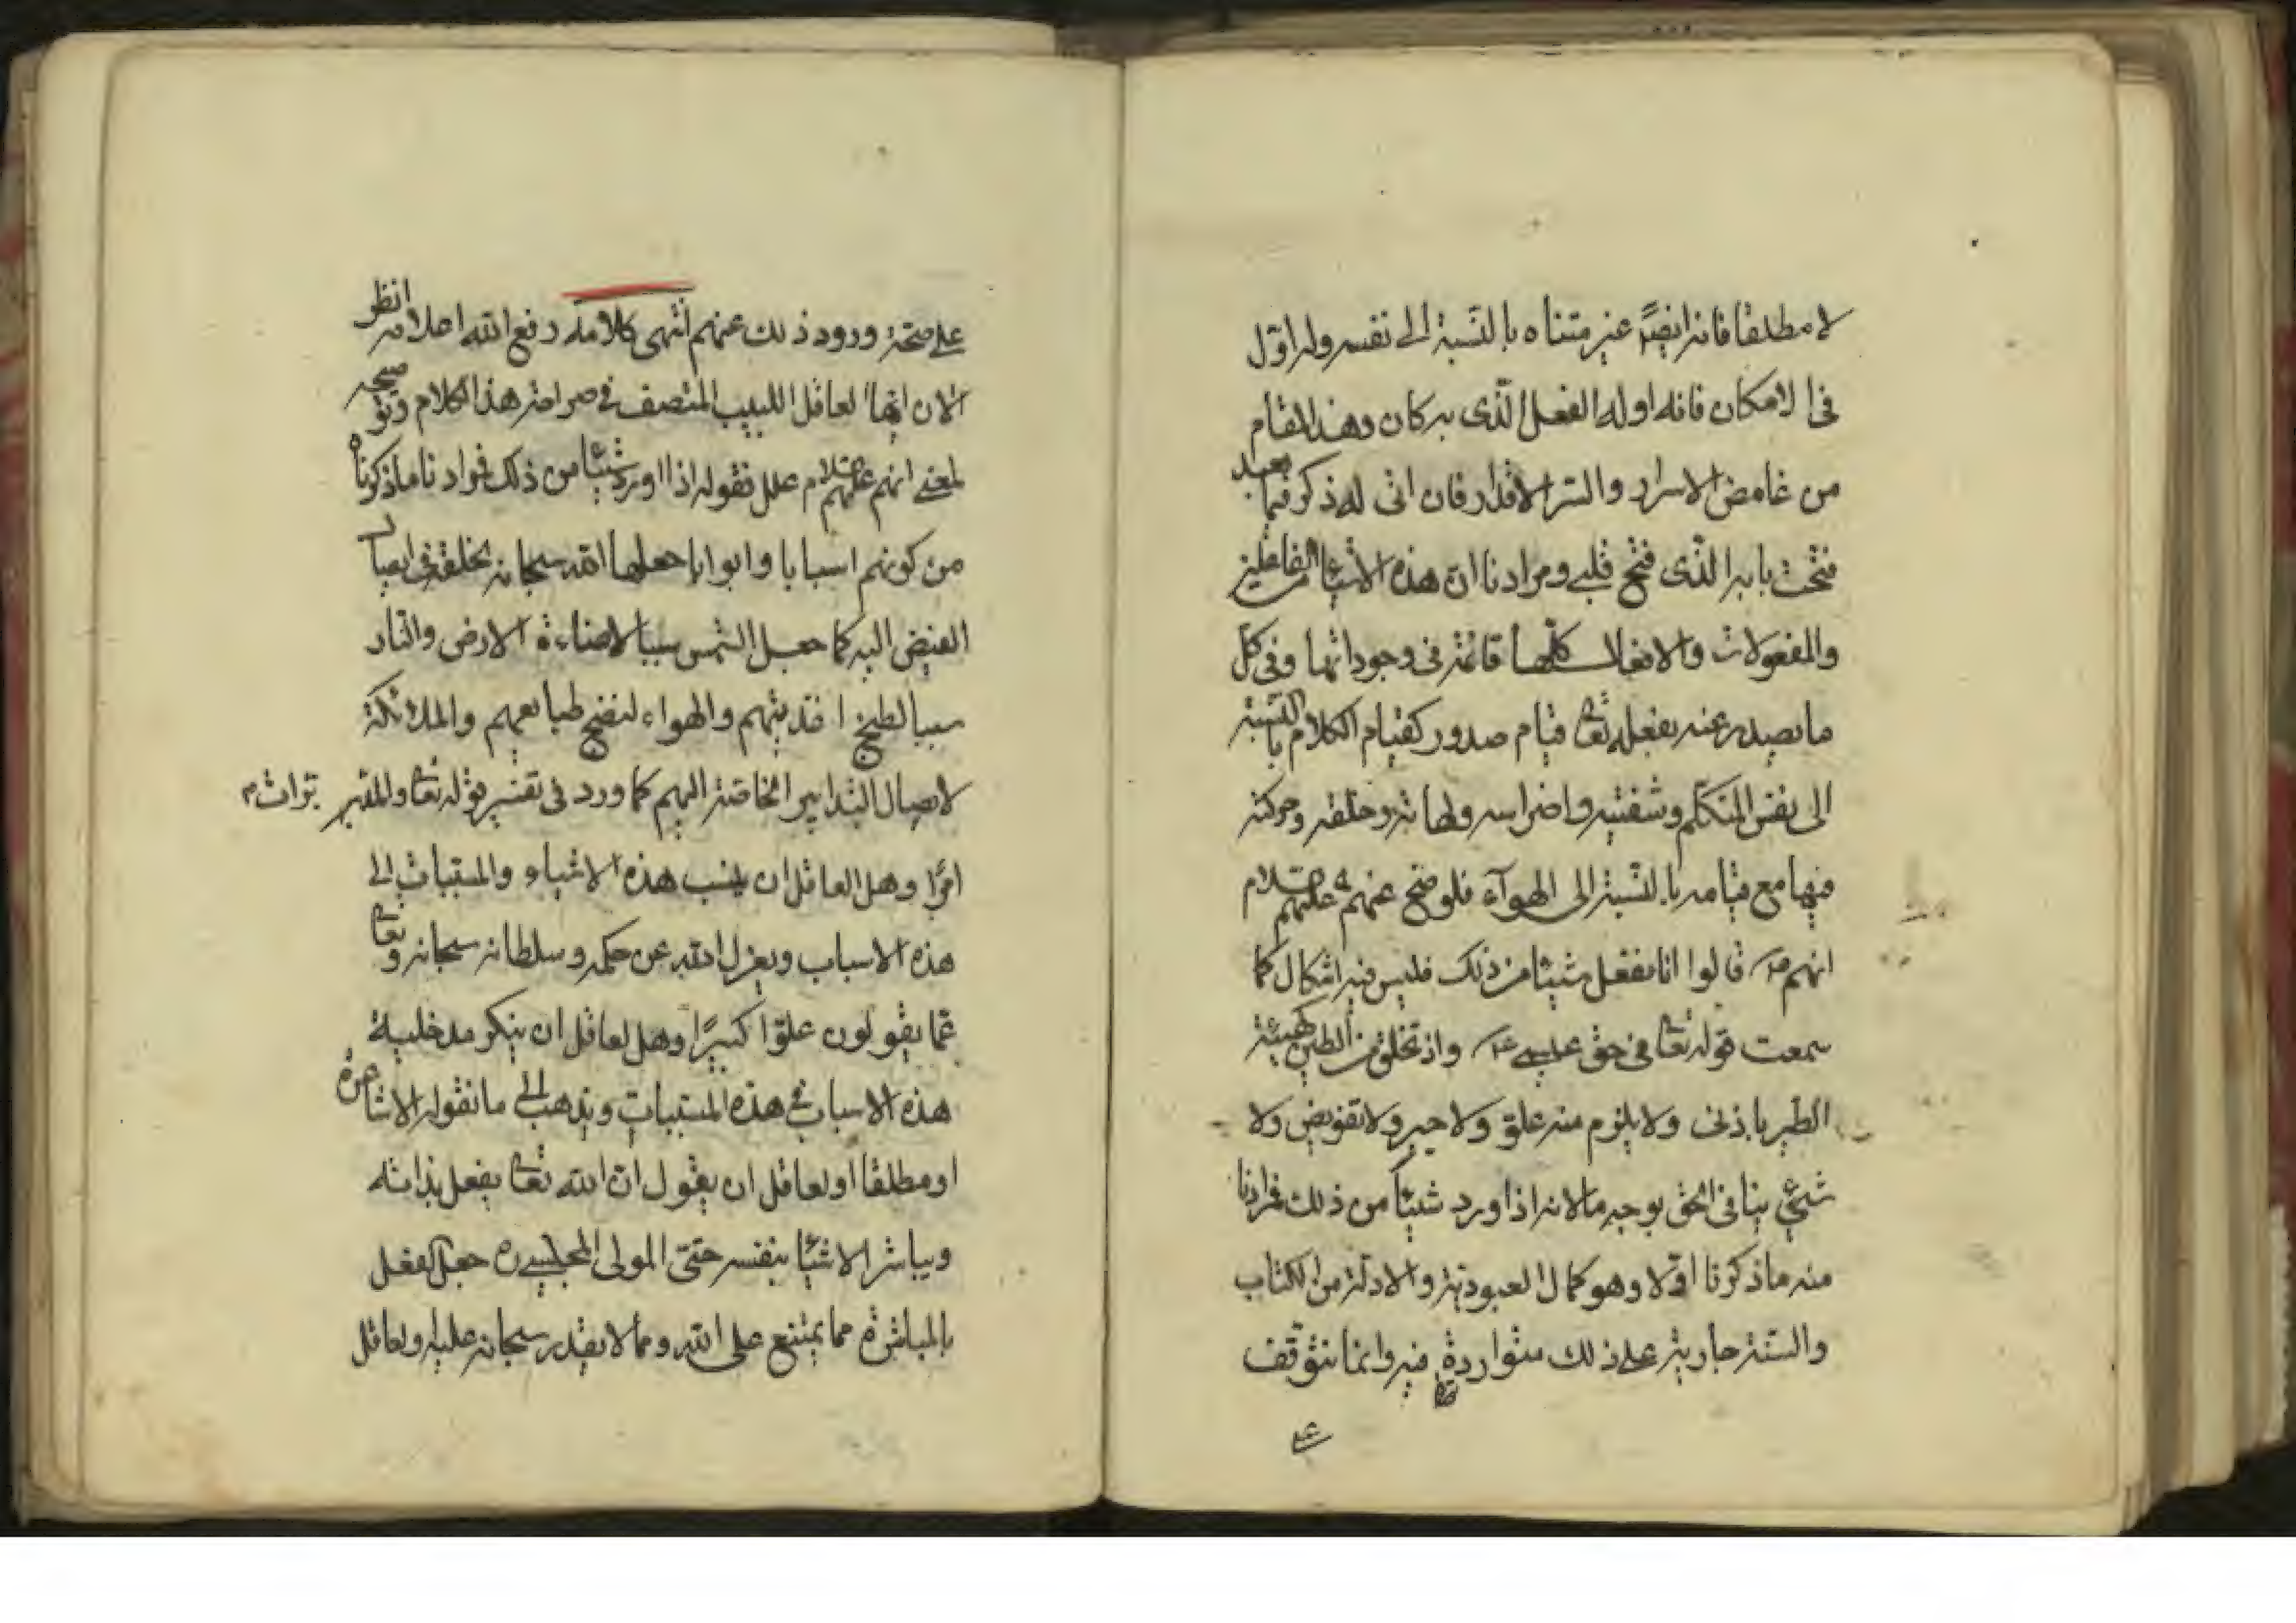 لا مطلقا فانه ايضًا غير متناه بالنّسبة الى نفسه وله اوّل
فى الامكان فانه اوله الفعل الّذى به كان وهذا المقام
من غامض الاسرار والسّر الاقدار فان اتى له ذكر فيما بعد
فتحت بابه الّذى فتح قلبى ومرادنا انّ هذه الاشيا من الفاعلين
والمفعولات والافعال كلّها قائمة فى وجوداتها وفى كلّ
ما يصدر عنه بفعله تعا قيام صدور كقيام الكلام بالنّسبة
الى نفس المتكلّم وشفتيه واضراسه ولهاته وحلقه وحركته
فيها مع قيامه بالنّسبة الى الهوآء فلو صحّ عنهم عليهم السّلام
انهم ع قالوا انا نفعل شيئا من ذلك فليس فيه اشكال كما
سمعت قوله تعا فى حق عيسى ع واذ تخلق من الطين كهيئة
الطير باذنى ولا يلزم منه غلوّ ولا جبر ولا تفويض ولا
شئ ينافى الحق بوجه ما لانه اذا ورد شيئا من ذلك فمرادنا
منه ما ذكرنا اوّلا وهو كمال العبوديّة والادلّة من الكتاب
والسّنة جارية على ذلك متواردة فيه وانما نتوقّف
على
على صحّة ورود ذلك عنهم انتهى كلامه رفع الله اعلامه انظر
الآن ايها العاقل اللبيب المنصف فى صراحة هذا الكلام وتوضيحه
لمعنى انهم عليهم السّلام علل بقوله اذا اورد شيئا من ذلك فمرادنا ما ذكرناه
من كونهم اسبابا وابوابا جعلها الله سبحانه لخلقه فى ايصال
الفيض اليه كما جعل الشمس سببا لاضاءة الارض والنّار
سببا لطبخ اغذيتهم والهواء لنضج طبايعهم والملائكة
لايصال التدابير الخاصّة اليهم كما ورد فى تفسير قوله تعا والمدبّرات م
امرًا وهل العاقل ان ينسب هذه الاشياء والمسّببات الى
هذه الاسباب ويعزل الله عن حكمه وسلطانه سبحانه وتعا
عمّا يقولون علوّا كبيرًا وهل لعاقل ان ينكر مدخليّة
هذه الاسباب فى هذه المسّببات ويذهب الى ما تقوله الاشاعرة
او مطلقا او لعاقل ان يقول انّ الله تعا يفعل بذاته
ويباشر الاشيا بنفسه حتّى المولى المجلسى ره جعل الفعل
بالمباشرة مما يمتنع على الله ومما لا يقدر سبحانه عليه ولعاقل